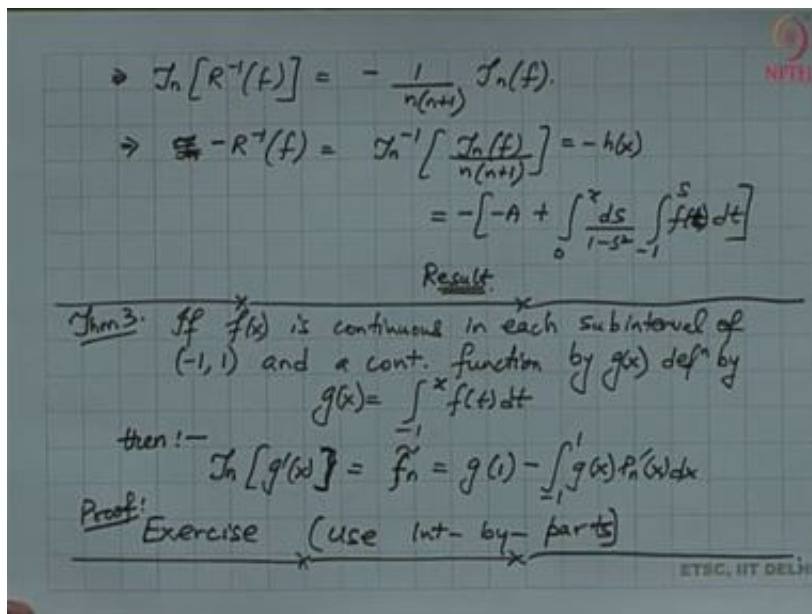 → Jn[R⁻¹(f)] = - 1/n(n+1) Jn(f).
⇒ -R⁻¹(f) = Jn⁻¹[Jn(f)/n(n+1)] = -h(x)
= -[-A + ∫₀ˣ ds/1-s² ∫₋₁ˢ f(t) dt]
Result.
Thm 3. If f(x) is continuous in each subinterval of
(-1, 1) and a cont. function by g(x) defⁿ by
g(x) = ∫₋₁ˣ f(t) dt
then :—
Jn[g'(x)] = f̃n = g(1) - ∫₋₁¹ g(x) Pn'(x) dx
Proof:
Exercise (use Int- by- parts)
NPTEL
ETSC, IIT DELHI